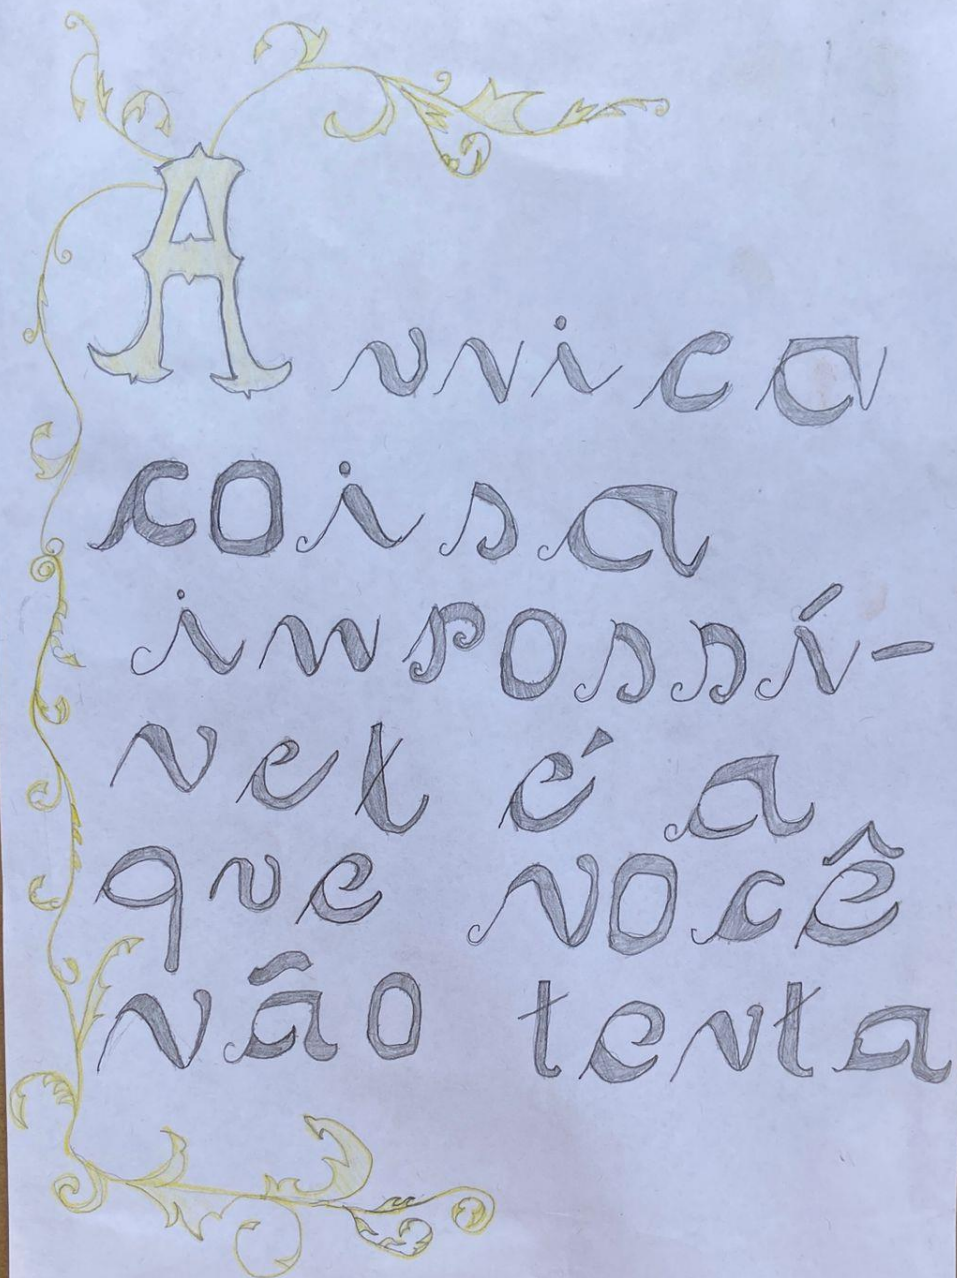 A unica
coisa
impossí-
vel é a
que você
não tenta